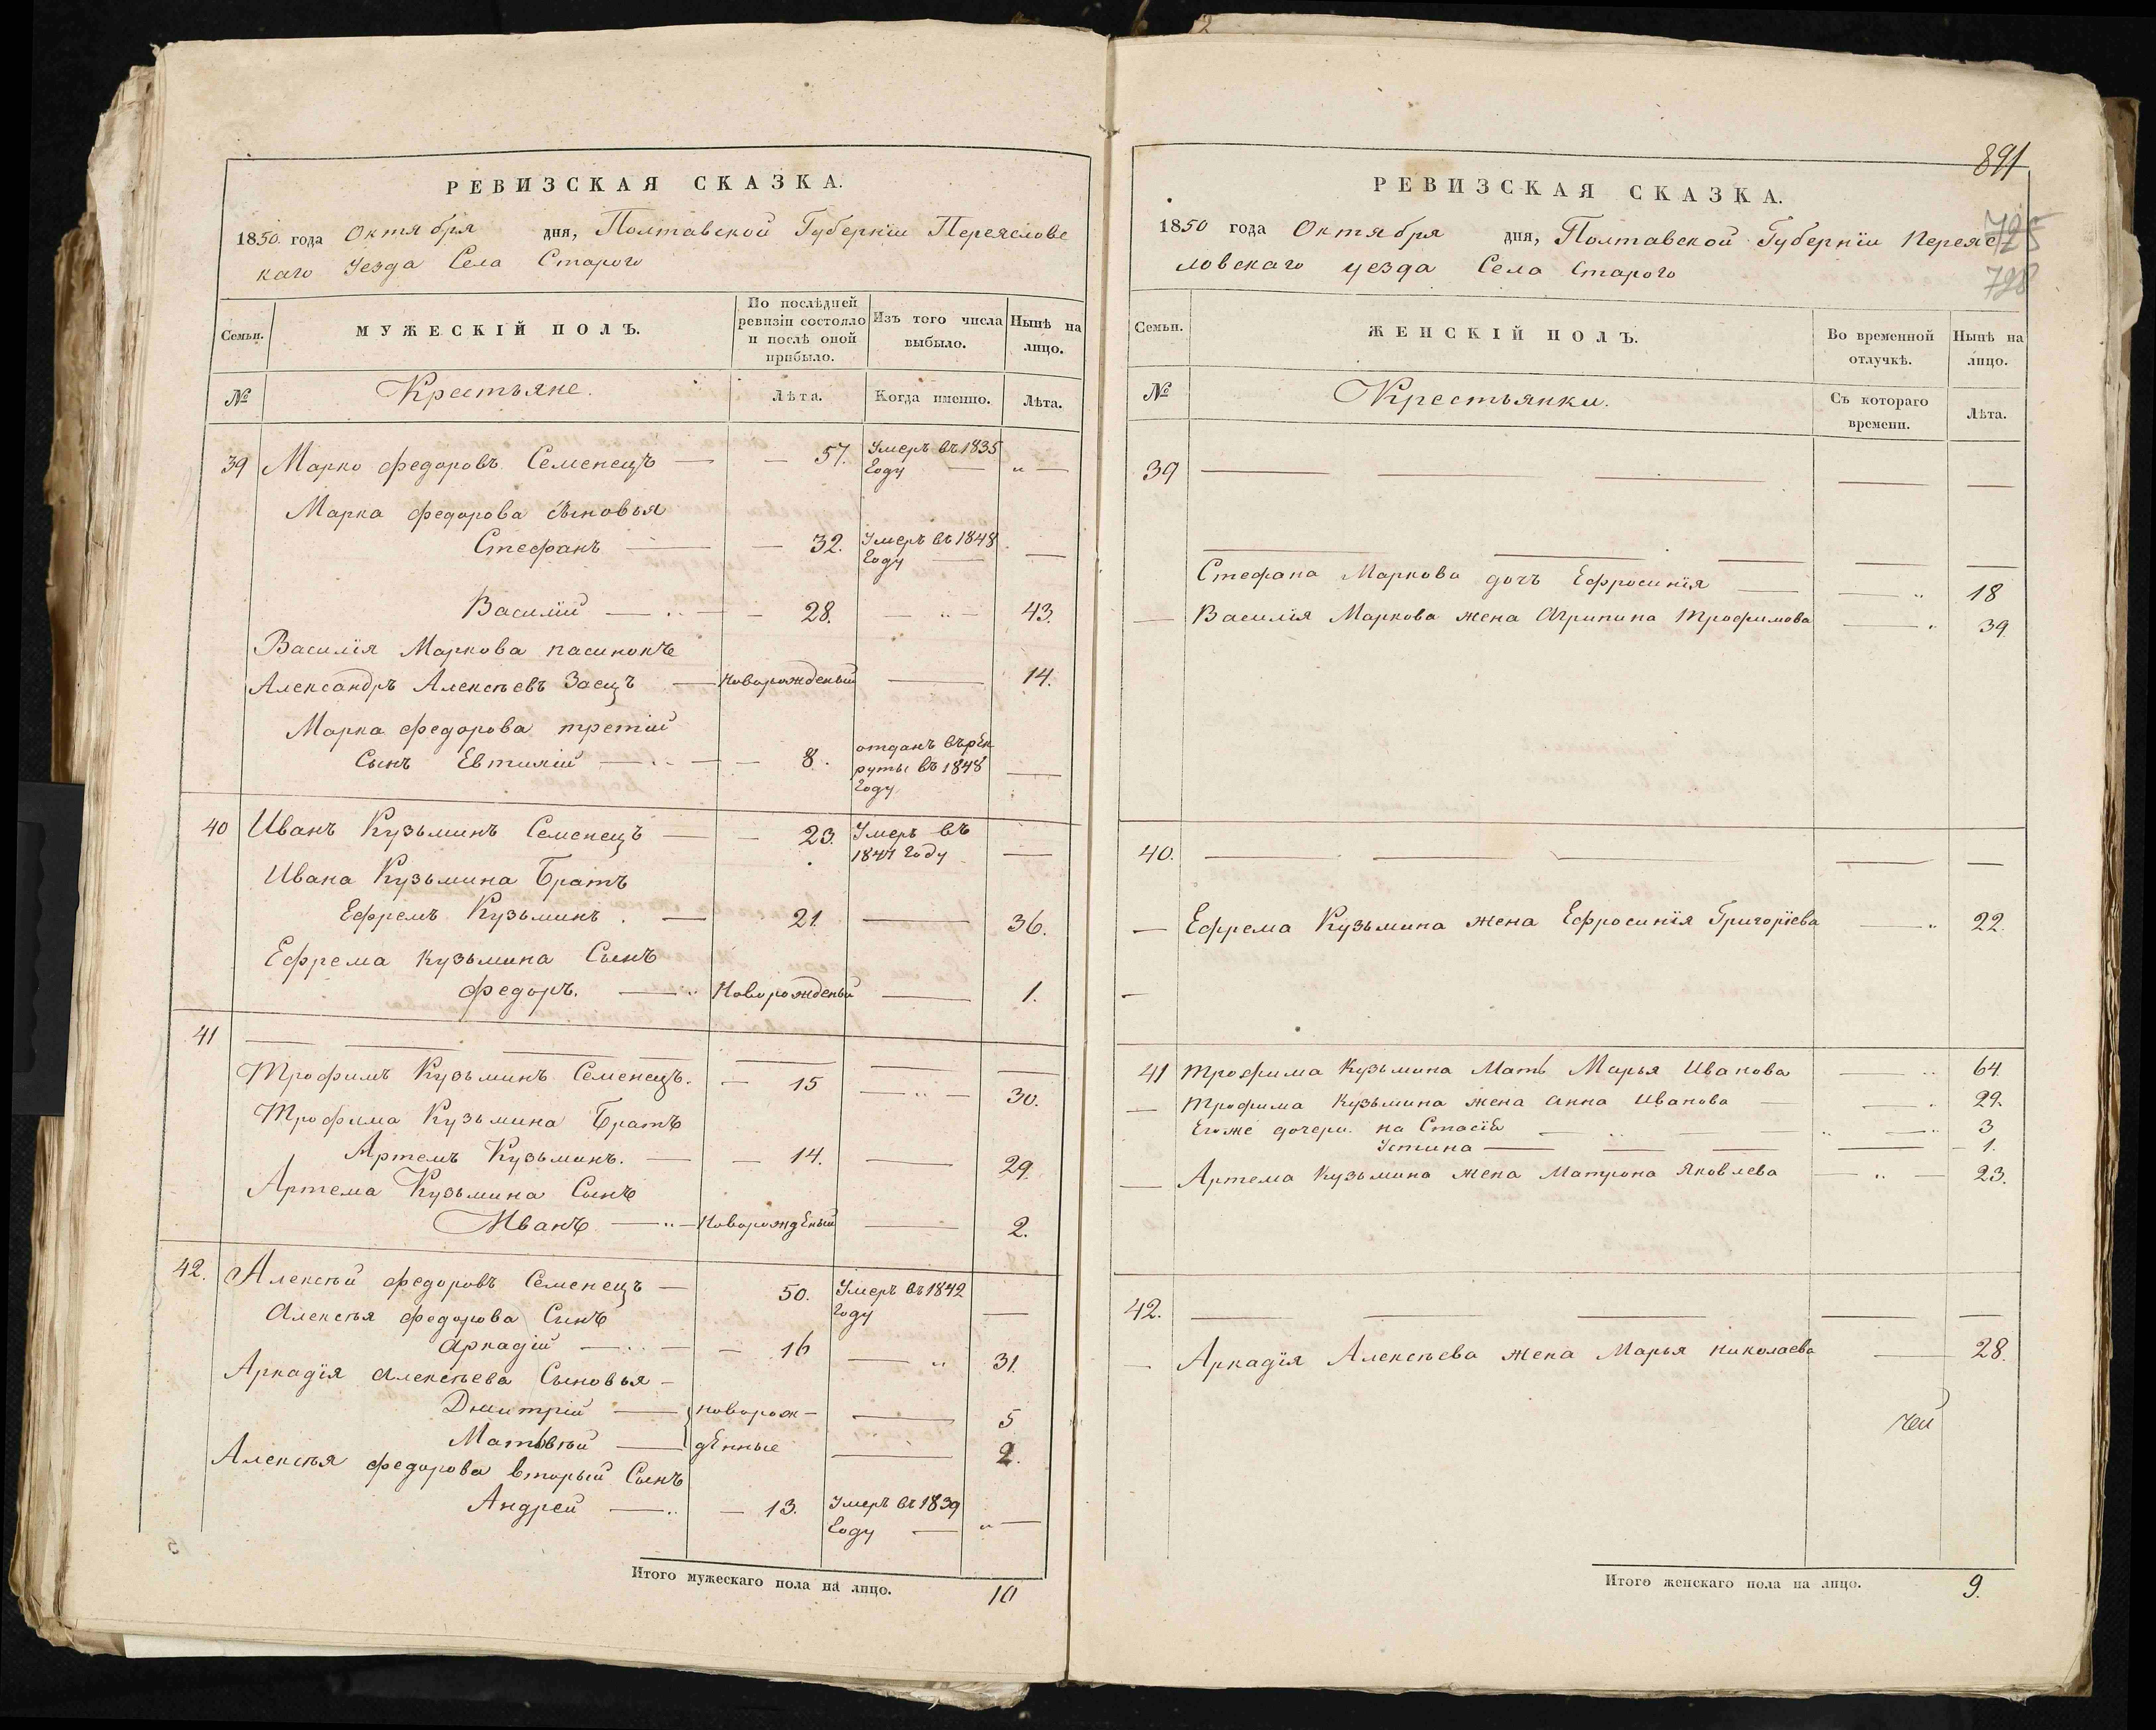 РЕВИЗСКАЯ СКАЗКА.
1850 года Октября дня, Полтавской Губерніи Переяславс
каго Уезда Села Старого
Семьи.
МУЖЕСКІЙ ПОЛЪ.
По послѣдней ревизіи состояло и послѣ оной прибыло.
Изъ того числа выбыло.
Нынѣ на лицо.
№
Крестьяне.
Лѣта.
Когда именно.
Лѣта.
39 Марко Федоровъ Семенецъ — 57. Умеръ въ 1835
Году
Марка Федорова Сыновья
Стефанъ — 32. Умеръ въ 1848
Году
Василій — 28. — 43.
Василія Маркова пасинокъ
Александръ Алексѣевъ Заецъ — новорожденый — 14.
Марка Федорова третій
Сынъ Евтихій — 8. отданъ въ рек
руты въ 1848
Году
40 Иванъ Кузьминъ Семенецъ — 23. Умеръ въ
Году
Ивана Кузьмина Братъ
Ефремъ Кузьминъ. — 21. — 36.
Ефрема Кузьмина Сынъ
Федоръ. — Новорожденый — 1.
41
Трофимъ Кузьминъ Семенецъ. — 15 — 30.
Трофима Кузьмина Братъ
Артемъ Кузьминъ. — 14. — 29.
Артема Кузьмина Сынъ
Иванъ — Новорожденый — 2.
42. Алексѣй Федоровъ Семенецъ — 50. Умеръ въ 1842
Году
Алексѣя Федорова Сынъ
Аркадій — 16 — 31.
Аркадія Алексѣева Сыновья —
Дмитрій — новорож— — 5
Матвѣй — денные — 2.
Алексѣя Федорова вторый Сынъ
Андрей — 13. Умеръ въ 1839
Году
Итого мужескаго пола на лицо. 10
891
РЕВИЗСКАЯ СКАЗКА.
725
1850 года Октября дня, Полтавской Губерніи Переяс
728
ловскаго уезда Села Старого
Семьи.
ЖЕНСКІЙ ПОЛЪ.
Во временной отлучкѣ.
Нынѣ на лицо.
№
Крестьянки.
Съ котораго времени.
Лѣта.
39
Стефана Маркова дочь Ефросинія — 18
Василія Маркова жена Агрипина Трофимова — 39.
40.
Ефрема Кузьмина жена Ефросинія Григоріева — 22.
41 Трофима Кузьмина Мать Марья Иванова — 64.
Трофима Кузьмина жена Анна Иванова — 29.
Егоже дочери. на Стасія — 3
Устина — 1.
Артема Кузьмина жена Матрона Яковлева — 23.
42.
Аркадія Алексѣева жена Марья Николаева — 28.
чей
Итого женскаго пола на лицо. 9.